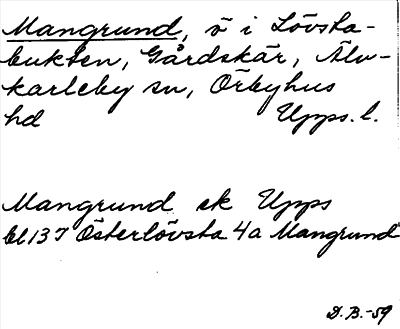 Mangrund, ö i Lövsta-
bukten, Gårdskär, Älv-
karleby sn, Örbyhus
hd Upps. l.
Mangrund ek Upps
bl 13 I Österlövsta 4a Mangrund
D.B.-59